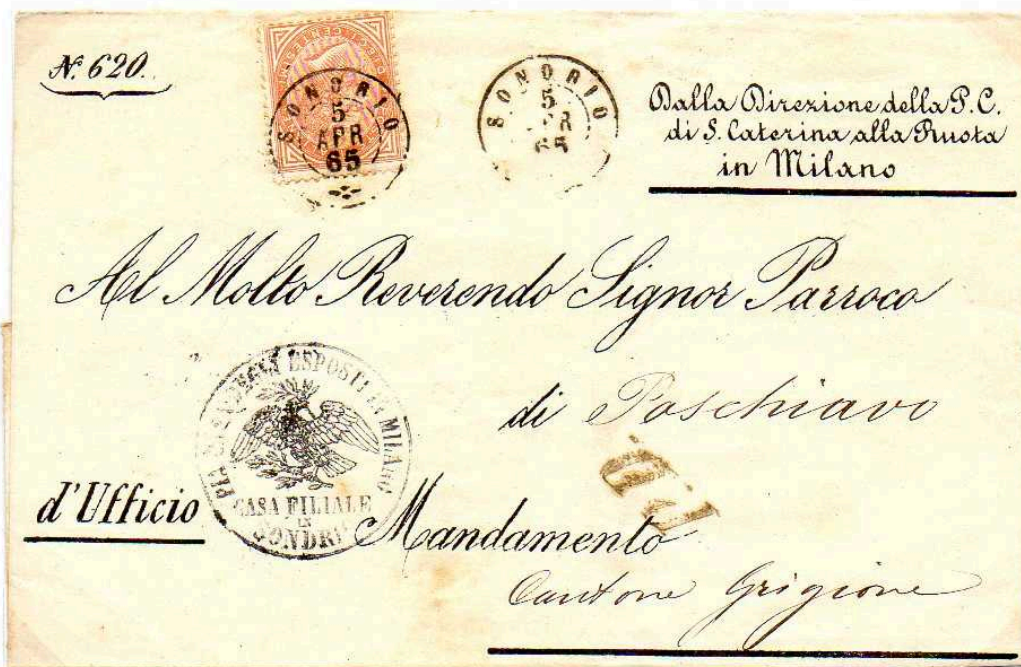 N. 620.
SONDRIO
5
APR
65
SONDRIO
5
APR
65
Dalla Direzione della P. C.
di S. Caterina alla Ruota
in Milano
Al Molto Reverendo Signor Parroco
di Poschiavo
ESPOSTI MILANO
CASA FILIALE
IN
SONDRIO
d'Ufficio
P.D.
Mandamento
Cantone Grigione